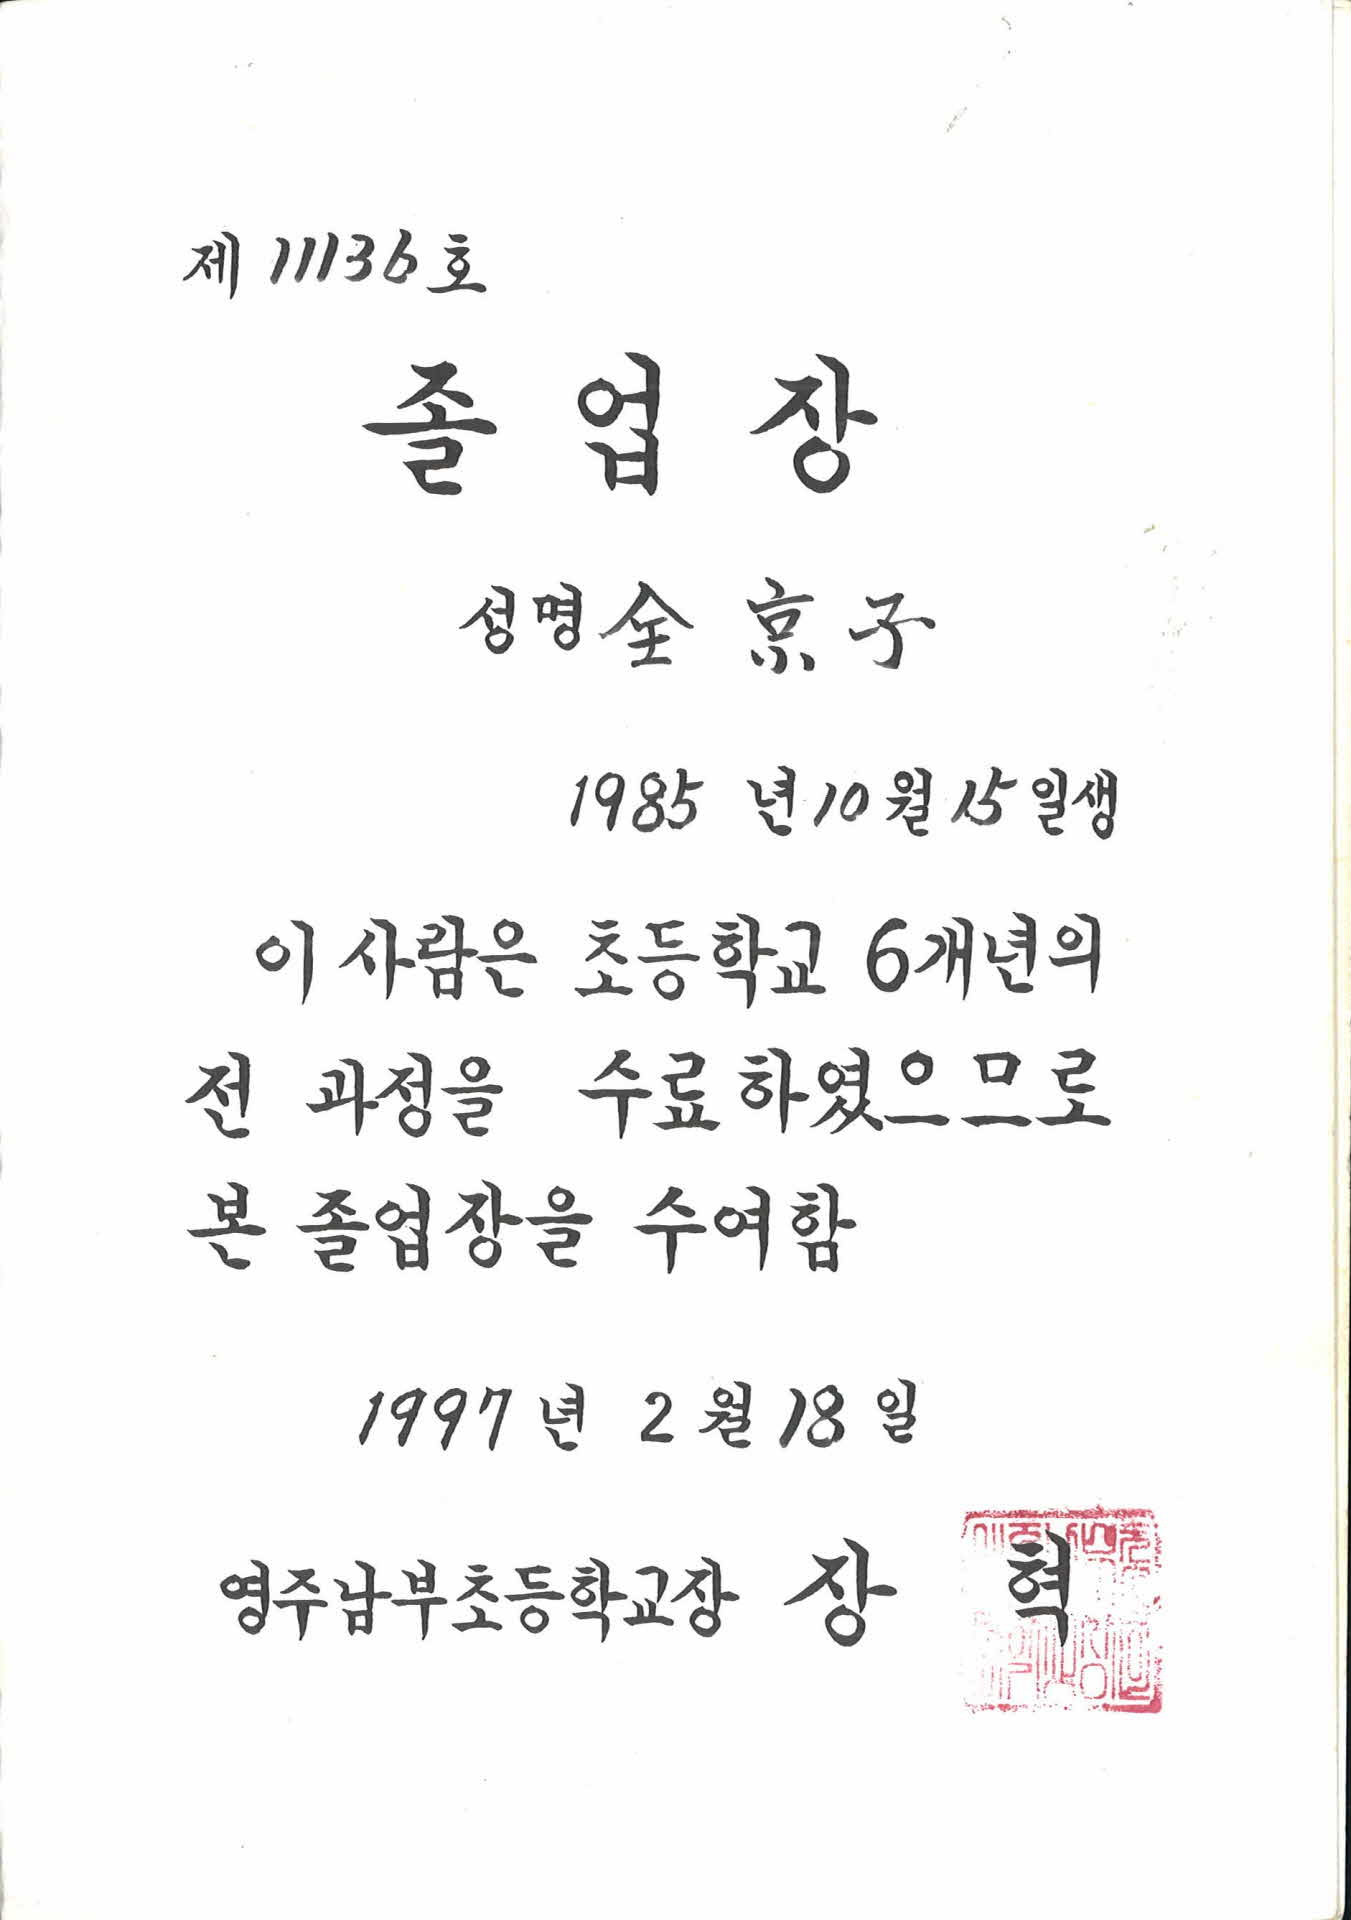 제 11136 호
졸 업 장
성명 全 京 子
1985 년 10 월 15 일생
이 사람은 초등학교 6개년의
전 과정을 수료하였으므로
본 졸업장을 수여함
1997 년 2 월 18 일
영주남부초등학교장 장 혁